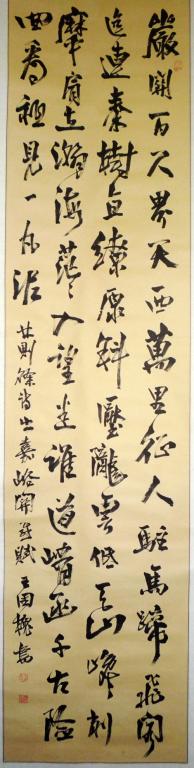 嚴關百尺界天西萬里征人駐馬蹄飛閣
遙連秦樹直繚垣斜壓隴雲低天山巉削
摩肩立瀚海蒼茫入望迷誰道崤函千古險
回看祗見一丸泥 林則徐詩出嘉峪關感賦 王國書